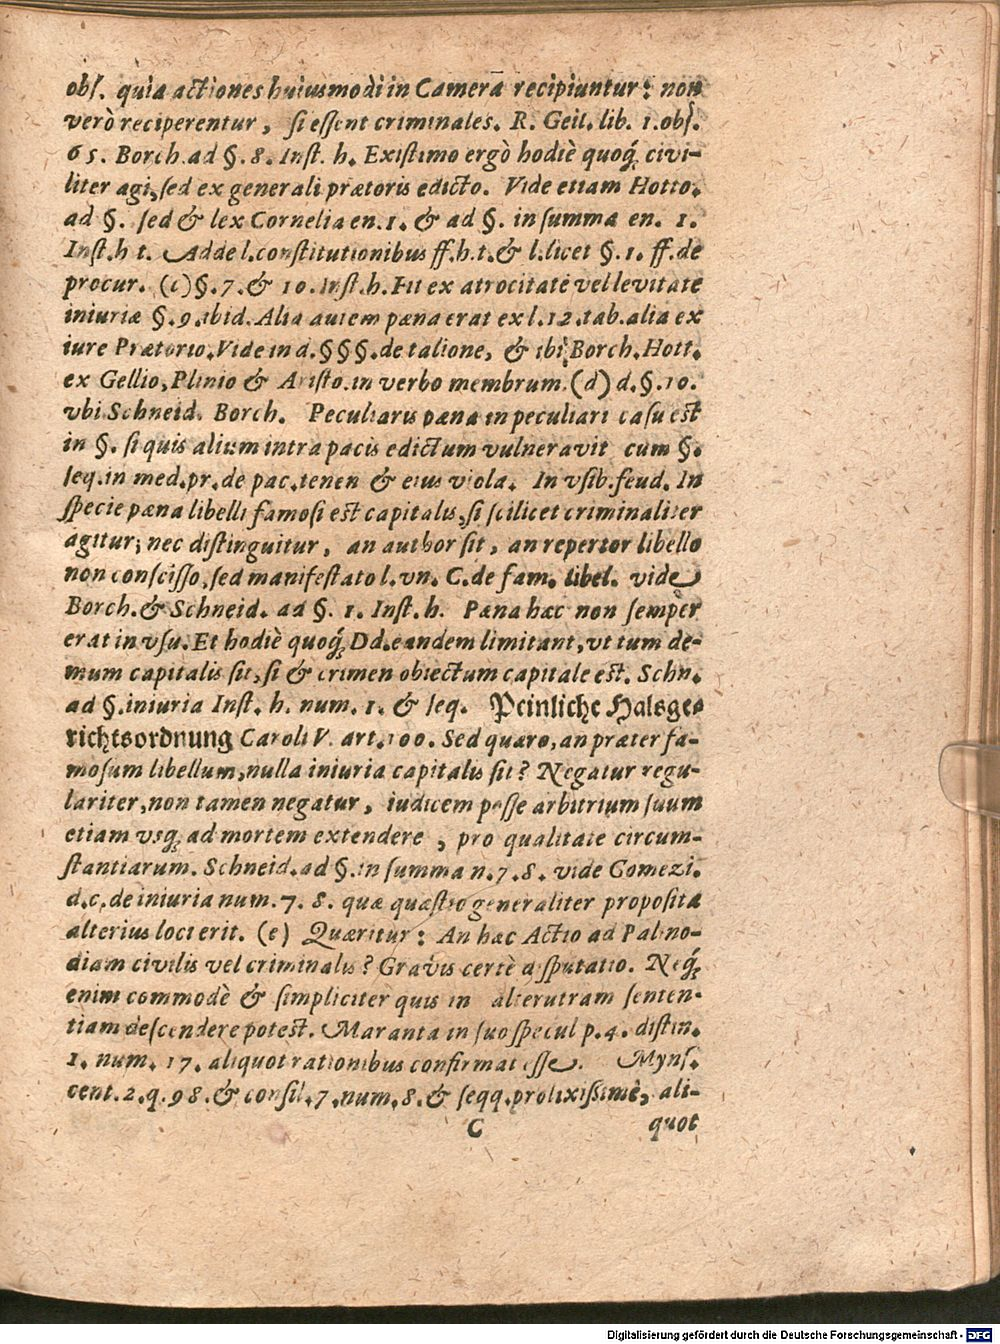 obſ. quia actiones huiusmodi in Camerā recipiuntur: non
verò reciperentur, ſi eſſent criminales. R. Geil. lib. 1. obſ.
65. Borch. ad §. 8. Inſt. h. Existimo ergò hodiè quoq́; civi-
liter agi, ſed ex generali prætoris edicto. Vide etiam Hotto.
ad §. ſed & lex Cornelia en. 1. & ad §. in ſumma en. 1.
Inſt. h t. Adde l. conſtitutionibus ff. h. t. & l. licet §. 1. ff. de
procur. (c) §. 7. & 10. Inſt. h. Fit ex atrocitate vel levitate
iniuriæ §. 9. ibid. Alia autem pœna erat ex l. 12. tab. alia ex
iure Prætorio. Vide in d. §§§. de talione, & ibi Borch. Hott.
ex Gellio, Plinio & Aristo. in verbo membrum. (d) d. §. 10.
vbi Schneid. Borch. Peculiaris pœna in peculiari caſu est
in §. ſi quis alium intra pacis edictum vulneravit cum §.
ſeq. in med. pr. de pac. tenen & eius viola. In vſib. feud. In
ſpecie pœna libelli famoſi est capitalis, ſi ſcilicet criminaliter
agitur; nec diſtinguitur, an author ſit, an repertor libello
non conſciſſo, ſed manifeſtato l. vn. C. de fam. libel. vide
Borch. & Schneid. ad §. 1. Inſt. h. Pœna hæc non ſemper
erat in vſu. Et hodiè quoq́; Dd. eandem limitant, vt tum de-
mum capitalis ſit, ſi & crimen obiectum capitale est. Schn.
ad §. iniuria Inſt. h. num. 1. & ſeq. Peinliche Halsge-
richtsordnung Caroli V. art. 100. Sed quæro, an præter fa-
moſum libellum, nulla iniuria capitalis ſit? Negatur regu-
lariter, non tamen negatur, iudicem poſſe arbitrium ſuum
etiam vsq; ad mortem extendere, pro qualitate circum-
ſtantiarum. Schneid. ad §. in ſumma n. 7. 8. vide Gomezi.
d. c. de iniuria num. 7. 8. quæ quæſtio generaliter propoſita
alterius loci erit. (e) Quæritur: An hæc Actio ad Palino-
diam civilis vel criminalis? Gravis certè diſputatio. Neq́;
enim commodè & ſimpliciter quis in alterutram ſenten-
tiam deſcendere potest. Maranta in ſuo ſpecul p. 4. diſtin.
1. num. 17. aliquot rationibus confirmat eſſe. Mynſ.
cent. 2. q. 98. & conſil. 7. num. 8. & ſeqq. prolixiſſimè, ali-
C quot
Digitalisierung gefördert durch die Deutsche Forschungsgemeinschaft - DFG